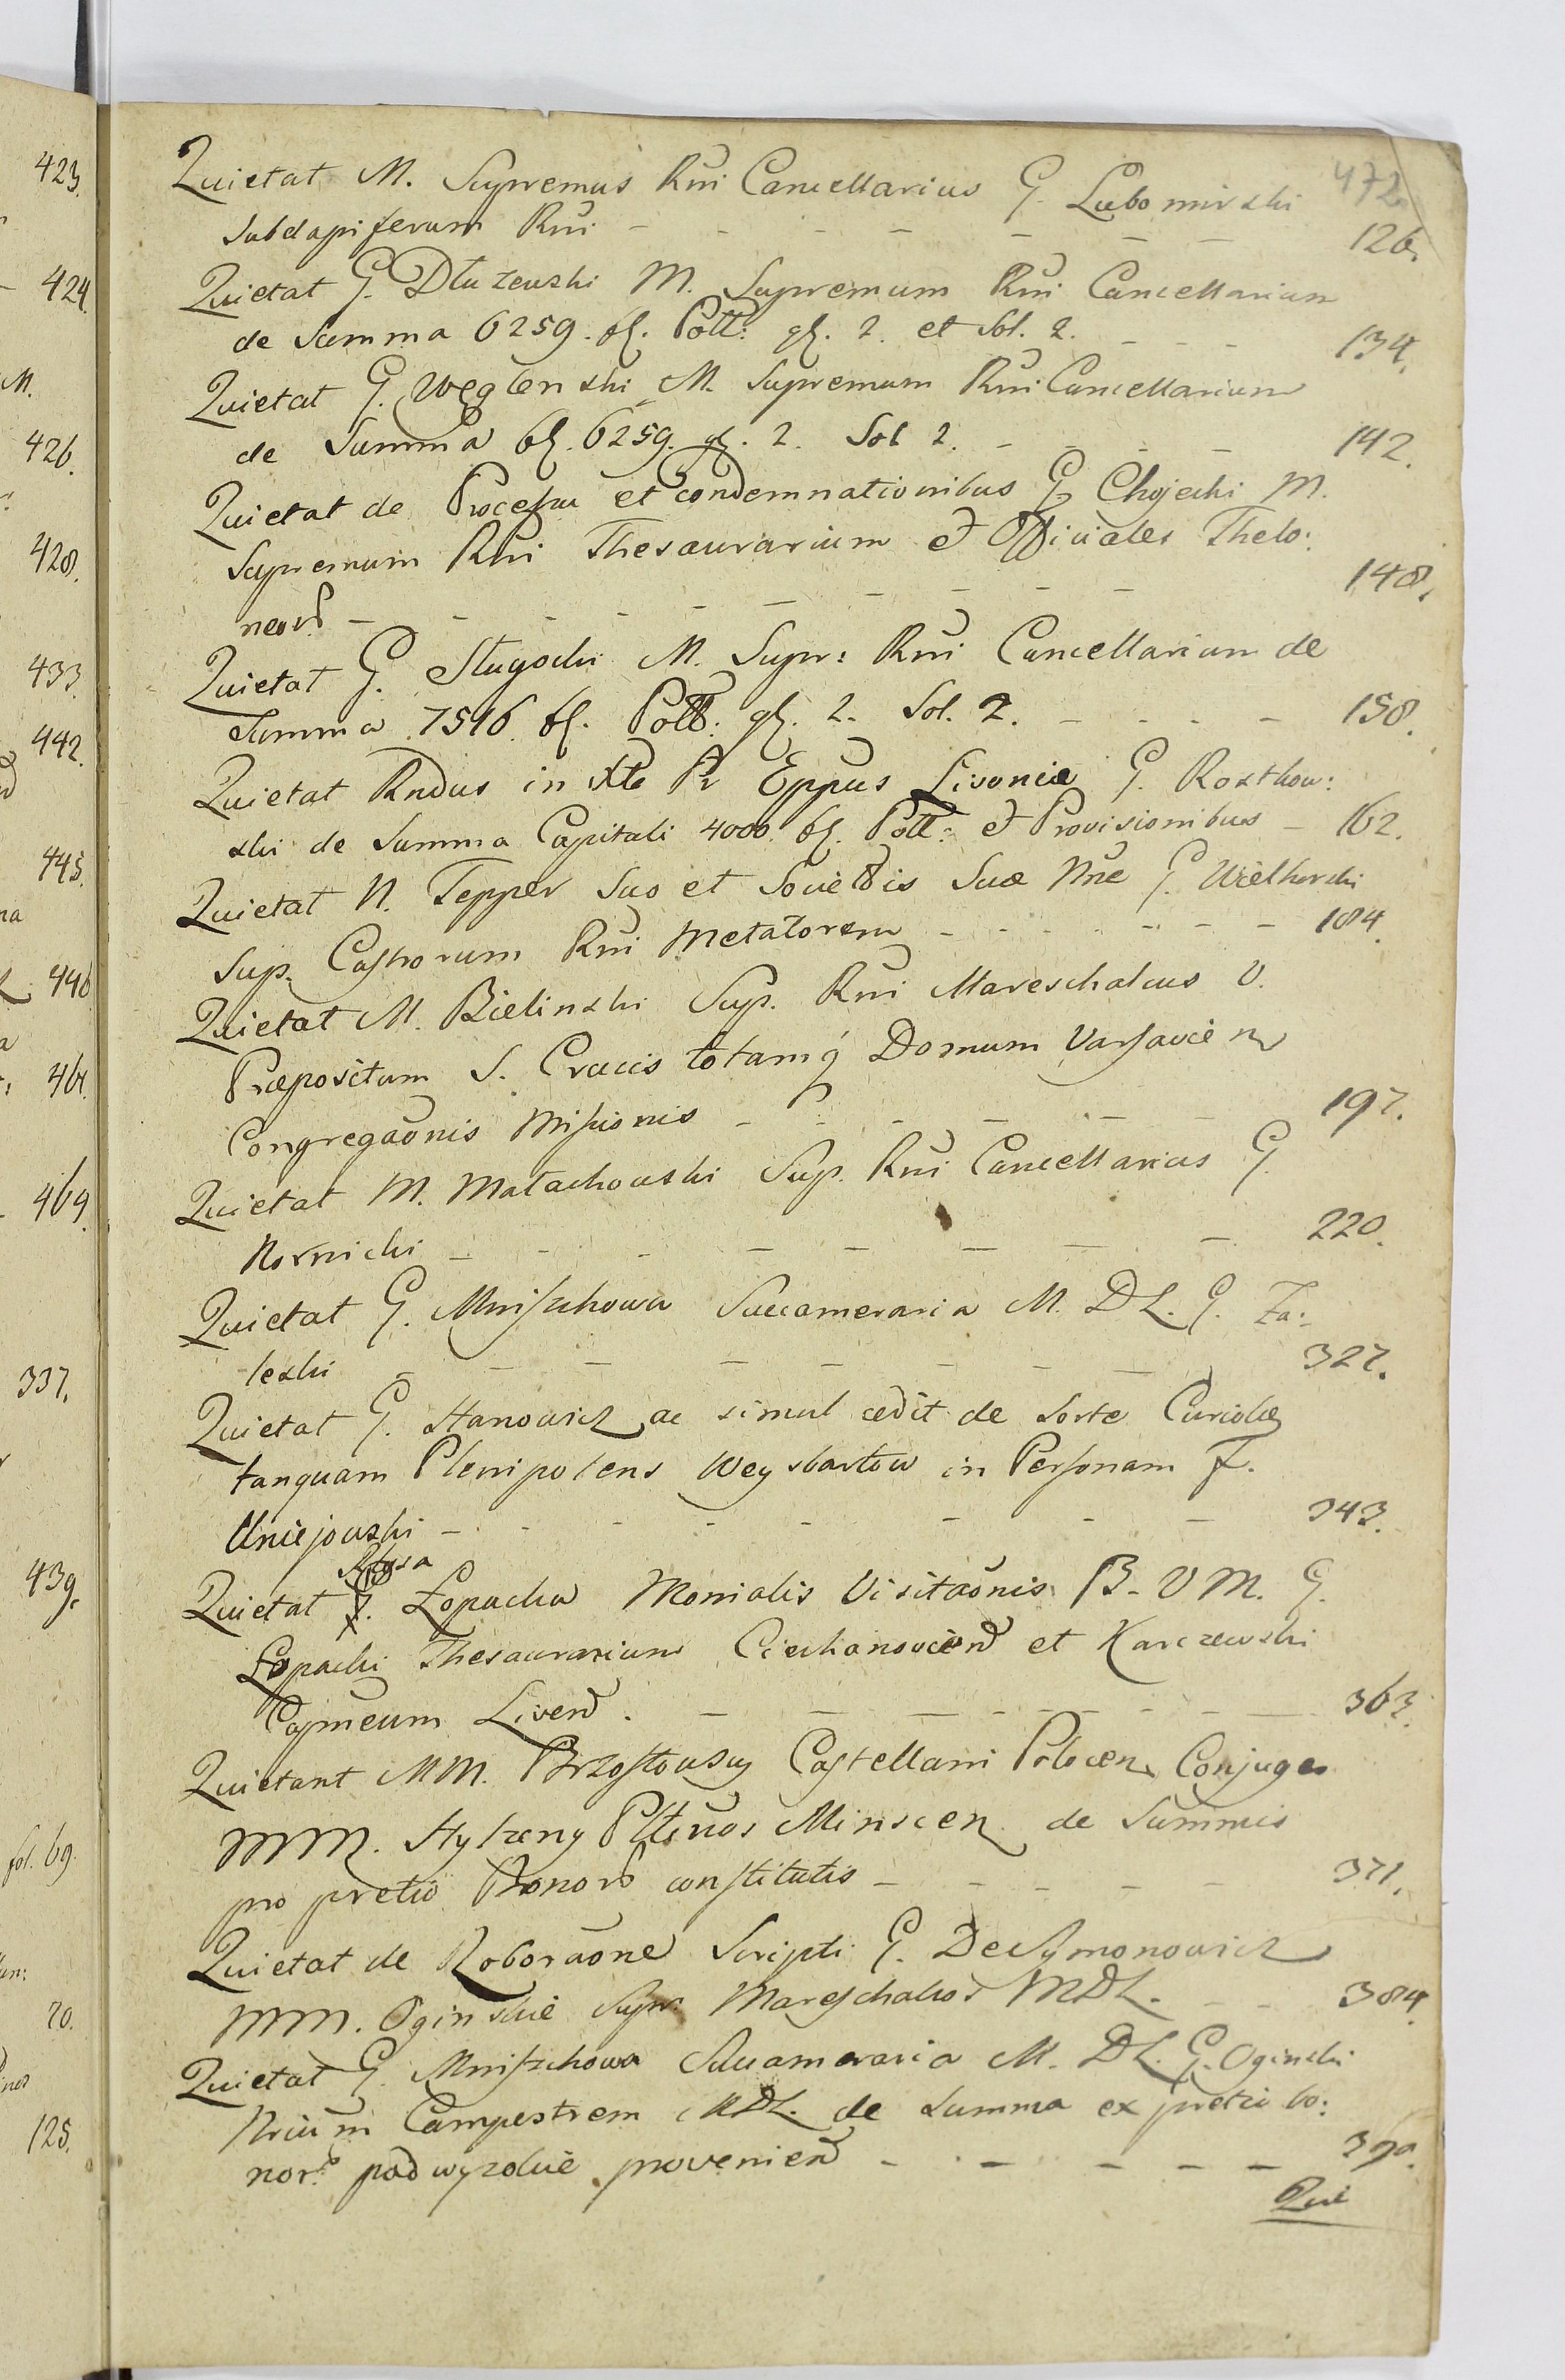 423.
424.
M.
426.
428.
433.
442.
445.
446
461.
469.
337.
439.
fol. 69.
70.
125.
472.
Quietat M. Supremus Rni Cancellarius G. Lubomirski
Subdapiferum Rni - - - - - - 126.
Quietat G. Dłużewski M. Supremum Rni Cancellarium
de Summa 6259. fl. Poll: gl. 2. et Sol. 2. - - - 134.
Quietat G. Węglenski M. Supremum Rni Cancellarium
de Summa fl. 6259. gl. 2. Sol 2. - - - - 142.
Quietat de Processu et condemnationibus G. Chojecki M.
Supremum Rni Thesaurarium et Officiales Thelo:
neor - - - - - - - - - 148.
Quietat G. Sługocki M. Supr: Rni Cancellarium de
Summa 7516 fl. Poll: gl. 2. Sol. 2. - - - - 158.
Quietat Rndus in Xto Pr Eppus Livoniæ G. Rostkow:
ski de Summa Capitali 4000 fl. Poll: et Provisionibus - 162.
Quietat N. Tepper Suo et Societtis Suæ Nne G. Wielhorski
Sup. Castrorum Rni Metatorem - - - - - - - 184.
Quietat M. Bielinski Sup. Rni Mareschalcus V.
Præpositum S. Crucis totamq Domum Varsavien
Congregaonis Missionis - - - - - - 197.
Quietat M. Małachowski Sup. Rni Cancellarius G.
Kornicki - - - - - - - - 220.
Quietat G. Mniszchowa Succameraria M. D L. G. Za:
leski - - - - - - - - 327.
Quietat G. Stanowicz ac simul cedit de Sorte Curiolæ
tanquam Plenipotens Weysbartow in Personam F.
Uniejowski - - - - - - - - 343.
Rlgsa
Quietat Łopacka Monialis Visitaonis B. V M. G.
Łopacki Thesaurarium Ciechanovien et Karczewski
Capneum Liven. - - - - - - - - 363.
Quietant MM. Brzostowscy Castellani Polocen Conjuges
MM. Hylzeny Plttnos Minscen de Summis
pro pretio Bonor constitutis - - - - - 371.
Quietat de Roboraone Scripti G. DeSymonowicz
MM. Oginskie Supr. Mareschalcos MDL. - - 384.
Quietat G. Mniszchowa Succameraria M. DL. G. Oginski
Nrium Campestrem MDL. de Summa ex pretio bo:
nor. podwyzolue provenien - - - - - 390.
Qui